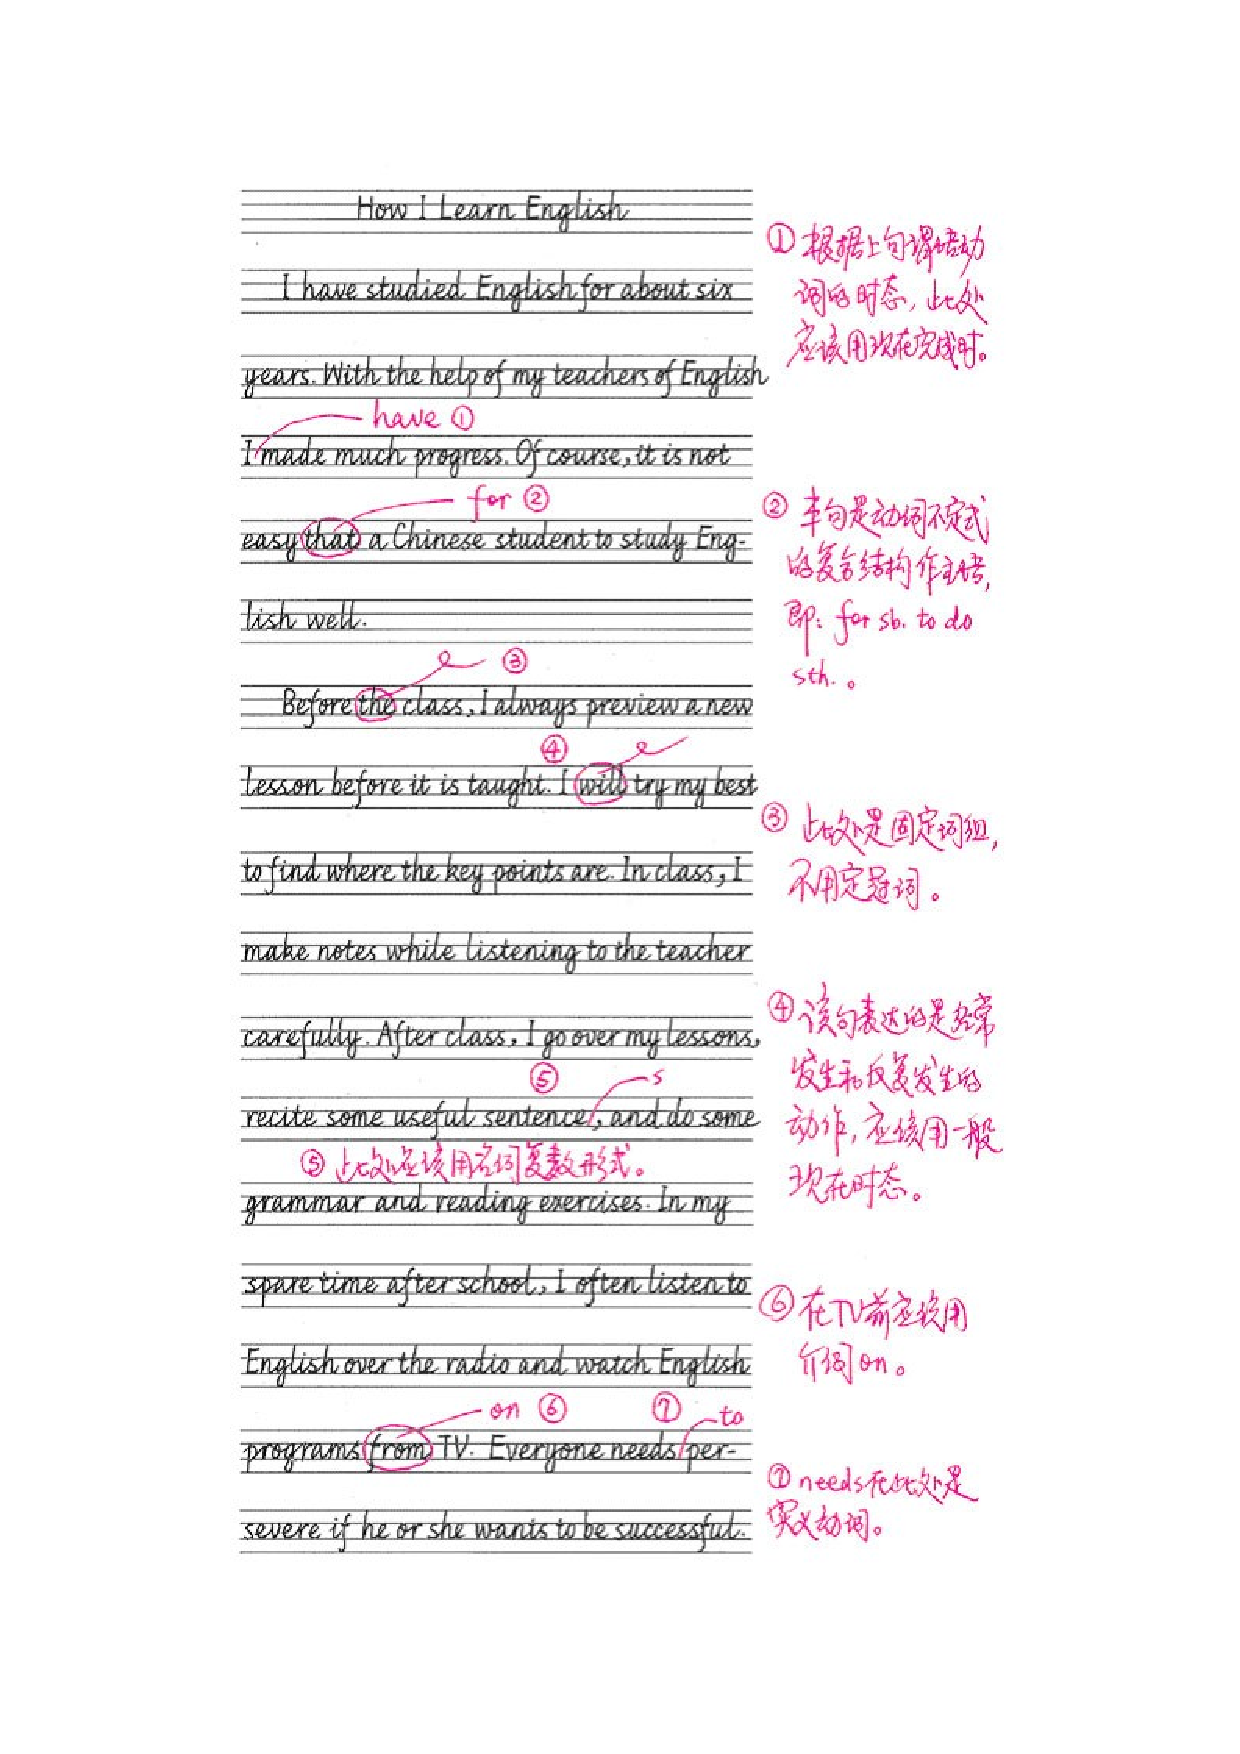 How I Learn English
I have studied English for about six
years. With the help of my teachers of English
have ①
I made much progress. Of course, it is not
for ②
easy that a Chinese student to study Eng-
lish well.
③
Before the class, I always preview a new
④
lesson before it is taught. I will try my best
to find where the key points are. In class, I
make notes while listening to the teacher
carefully. After class, I go over my lessons,
⑤ s
recite some useful sentence, and do some
⑤ 此处应该用名词复数形式。
grammar and reading exercises. In my
spare time after school, I often listen to
English over the radio and watch English
on ⑥ ⑦ to
programs from TV. Everyone needs per-
severe if he or she wants to be successful.
① 根据上句谓语动
词的时态, 此处
应该用现在完成时。
② 本句是动词不定式
的复合结构作主语,
即: for sb. to do
sth. 。
③ 此处是固定词组,
不用定冠词。
④ 该句表达的是经常
发生和反复发生的
动作, 应该用一般
现在时态。
⑥ 在TV前应该用
介词on。
⑦ needs在此处是
实义动词。